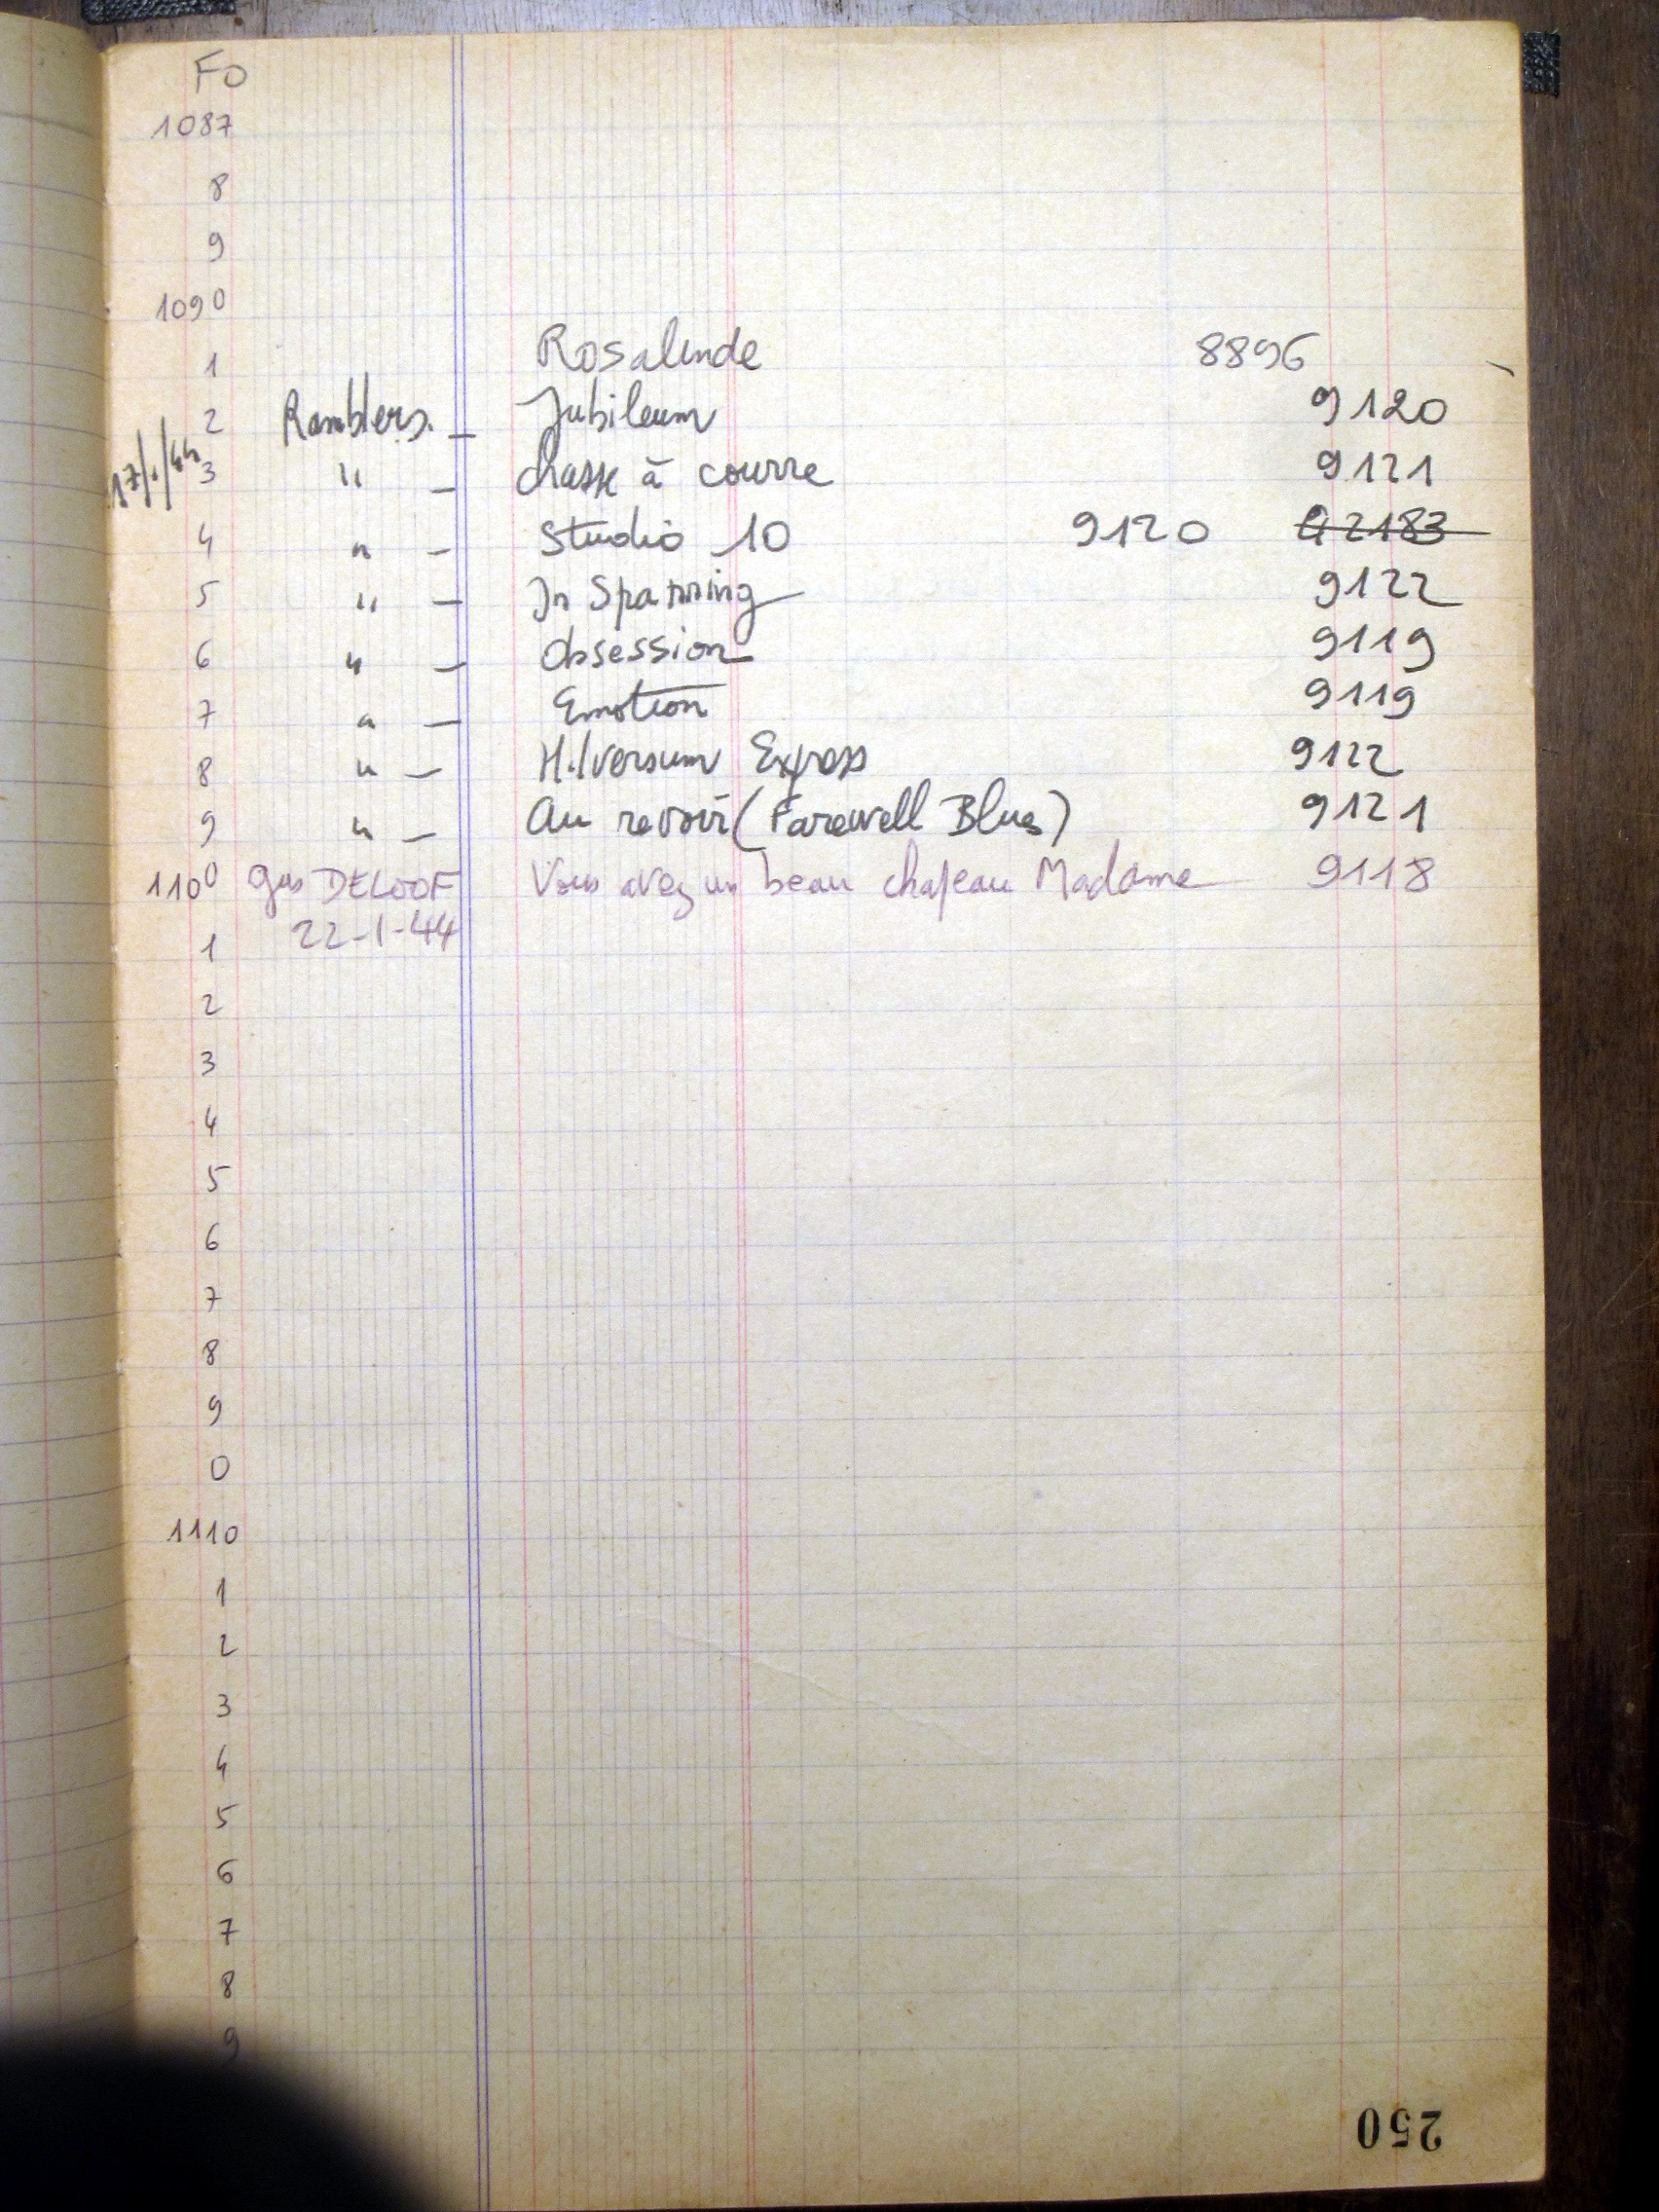 FO
1087
8
9
1090
1 Rosalinde 8896
2 Ramblers. — Jubileum 9120
17/1/44 3 " — Chasse à courre 9121
4 " — Studio 10 9120 A 2183
5 " — In Spanning 9122
6 " — Obsession 9119
7 " — Emotion 9119
8 " — Hilversum Express 9122
9 " — Au revoir (Farewell Blues) 9121
1100 Gus DELOOF Vous avez un beau chapeau Madame 9118
1 22-1-44
2
3
4
5
6
7
8
9
0
1110
1
2
3
4
5
6
7
8
9
250